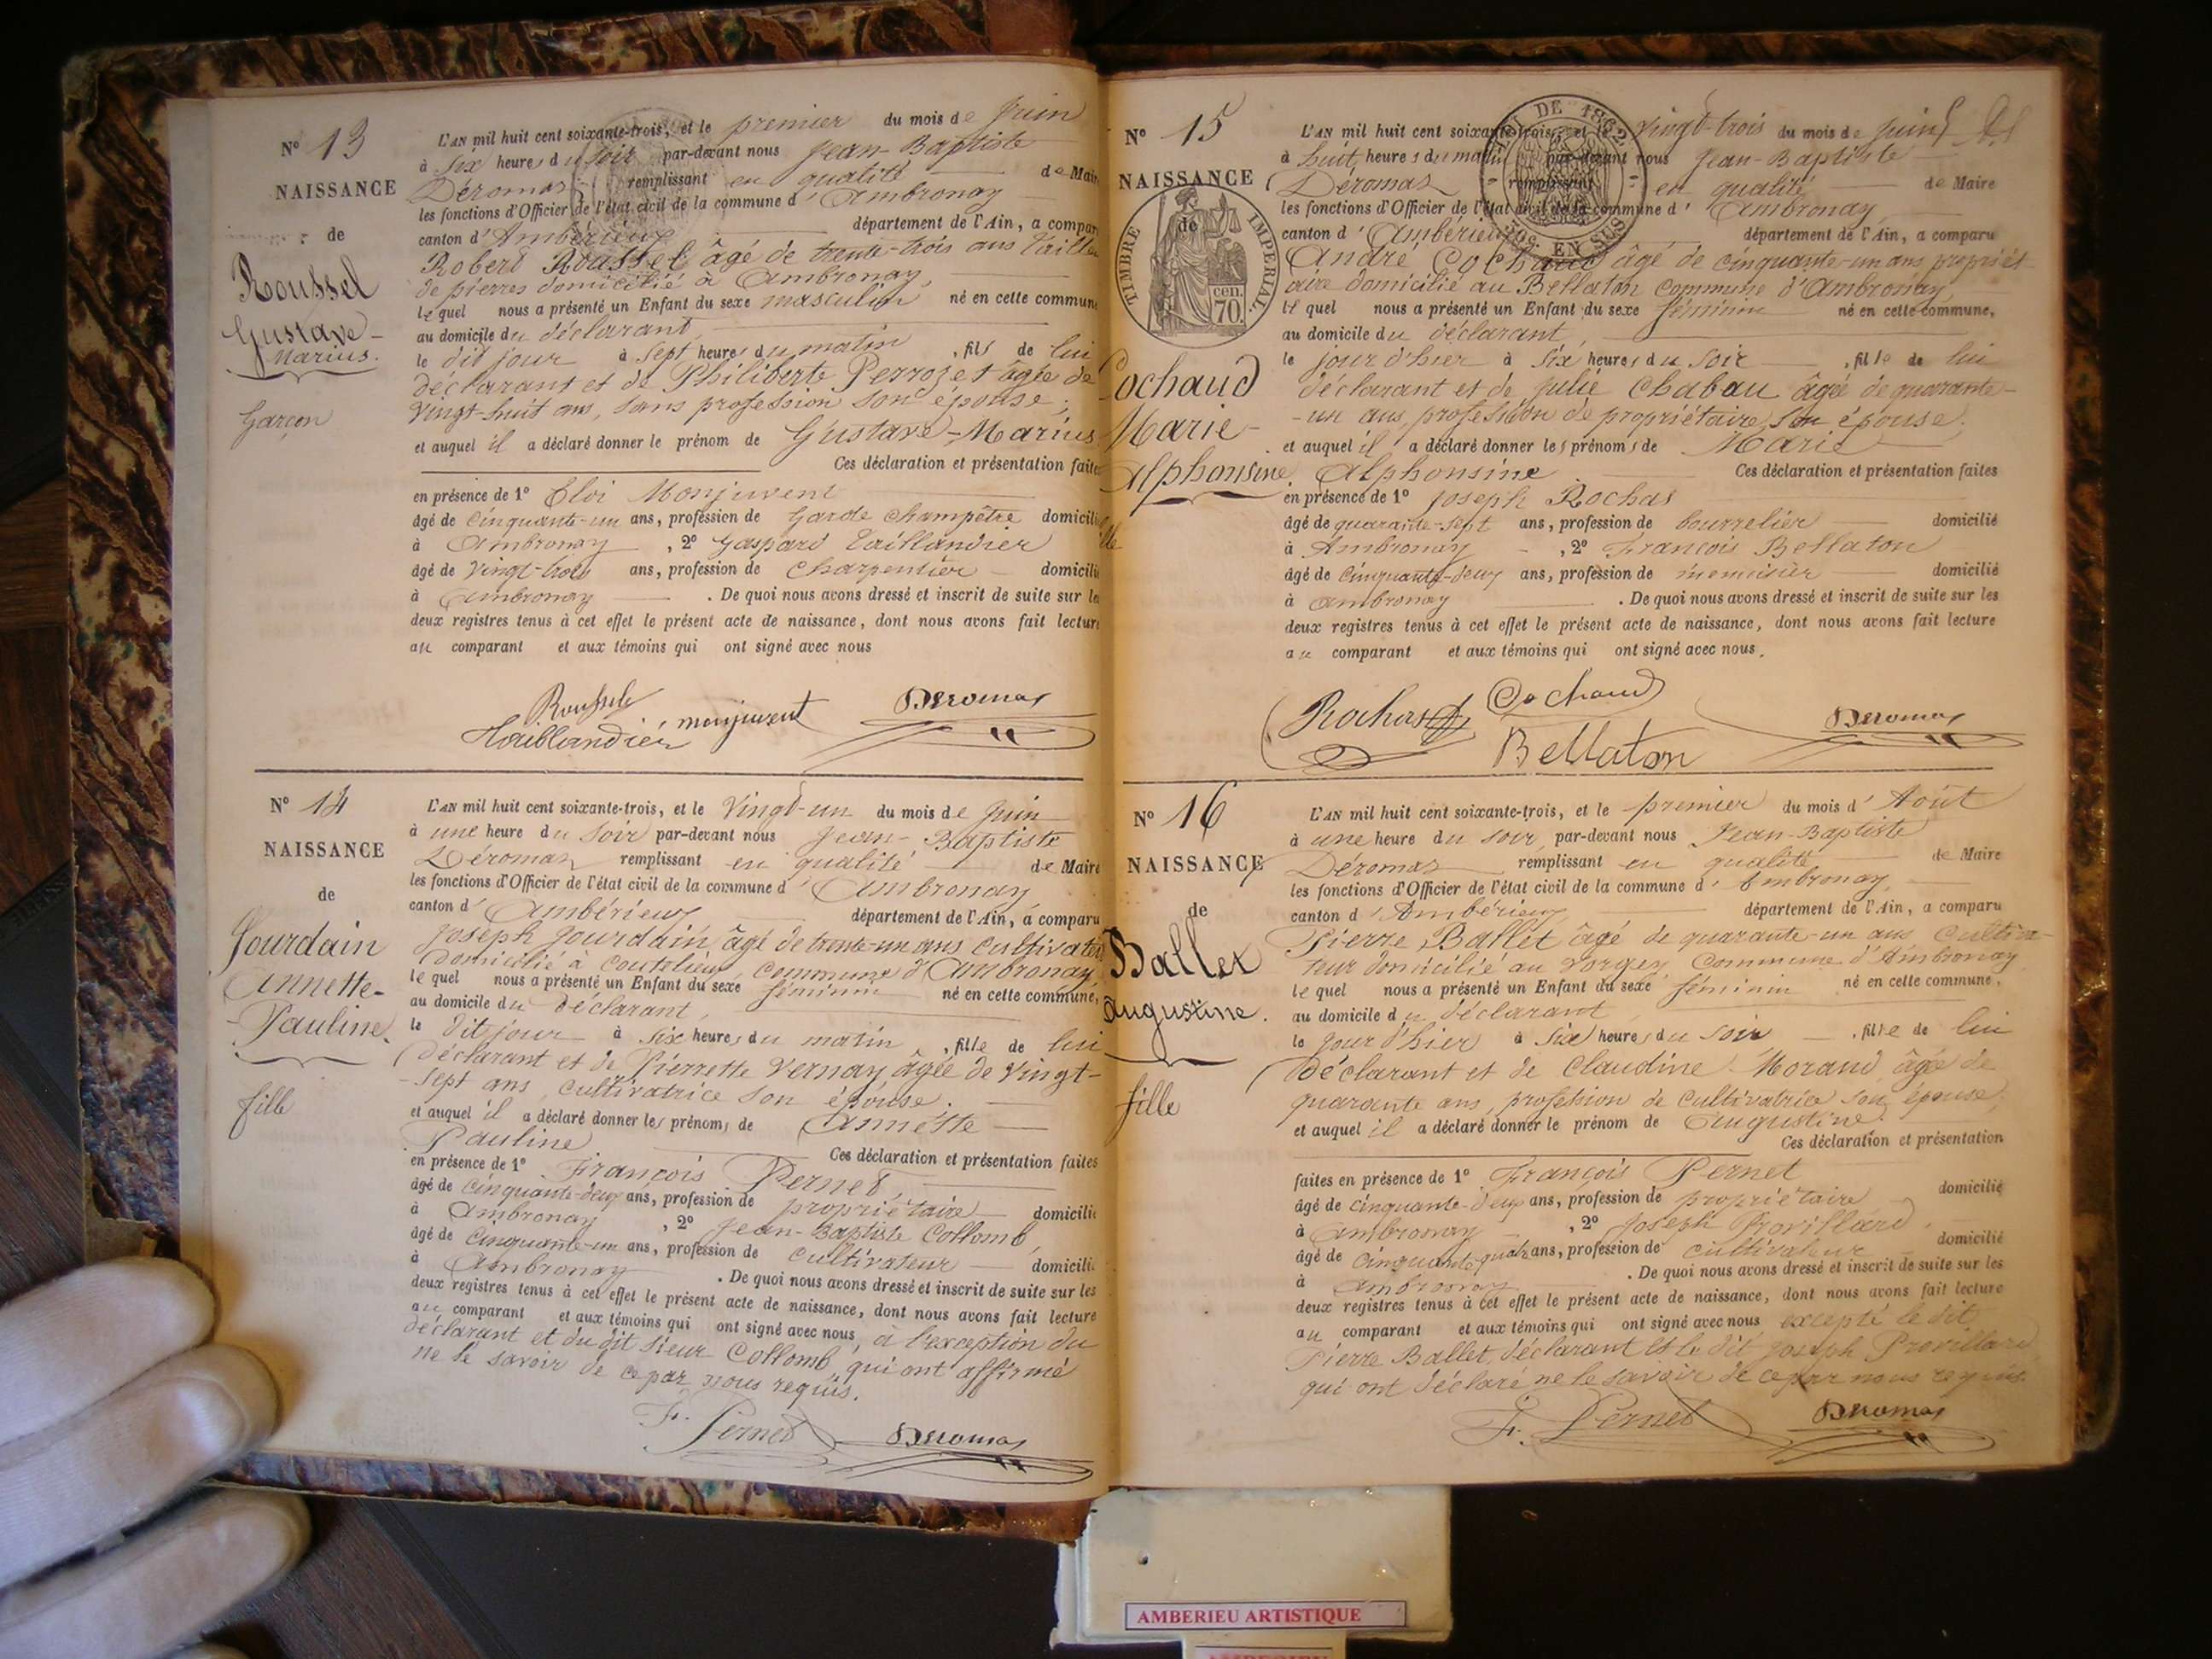 N° 13
NAISSANCE
de
Roussel
Gustave-
Marius.
Garçon
L'AN mil huit cent soixante-trois, et le premier du mois de Juin
à six heures du soir par-devant nous Jean-Baptiste
Déromas remplissant en qualité de Maire
les fonctions d'Officier de l'état civil de la commune d'Ambronay
canton d'Ambérieux département de l'Ain, a comparu
Robert Roussel âgé de trente-trois ans tailleur
de pierres domicilié à Ambronay,
lequel nous a présenté un Enfant du sexe masculin né en cette commune
au domicile du déclarant,
le dit jour à sept heures du matin, fils de lui
déclarant et de Philiberte Perrozet âgée de
vingt-huit ans, sans profession son épouse;
et auquel il a déclaré donner le prénom de Gustave-Marius
Ces déclaration et présentation faites
en présence de 1° Eloi Monjuvent
âgé de cinquante-un ans, profession de Garde champêtre domicilié
à Ambronay, 2° Gaspard Taillandier
âgé de vingt-trois ans, profession de charpentier domicilié
à Ambronay. De quoi nous avons dressé et inscrit de suite sur les
deux registres tenus à cet effet le présent acte de naissance, dont nous avons fait lecture
au comparant et aux témoins qui ont signé avec nous
Roussel
Taillandier monjuvent Deromas
N° 14
NAISSANCE
de
Jourdain
Annette-
Pauline.
fille
L'AN mil huit cent soixante-trois, et le vingt-un du mois de Juin
à une heure du soir par-devant nous Jean-Baptiste
Déromas remplissant en qualité de Maire
les fonctions d'Officier de l'état civil de la commune d'Ambronay
canton d'Ambérieux département de l'Ain, a comparu
Joseph Jourdain âgé de trente-un ans cultivateur
domicilié à Coutelieu, commune d'Ambronay,
lequel nous a présenté un Enfant du sexe féminin né en cette commune,
au domicile du déclarant,
le dit jour à six heures du matin, fille de lui
déclarant et de Pierrette Vernay âgée de vingt-
-sept ans, cultivatrice son épouse;
et auquel il a déclaré donner les prénoms de Annette
Pauline Ces déclaration et présentation faites
en présence de 1° François Pernet,
âgé de cinquante-deux ans, profession de propriétaire domicilié
à Ambronay, 2° Jean-Baptiste Collomb,
âgé de cinquante-un ans, profession de cultivateur domicilié
à Ambronay. De quoi nous avons dressé et inscrit de suite sur les
deux registres tenus à cet effet le présent acte de naissance, dont nous avons fait lecture
au comparant et aux témoins qui ont signé avec nous, à l'exception du
déclarant et du dit sieur Collomb qui ont affirmé
ne le savoir de ce par nous requis.
F. Pernet Deromas
N° 15
NAISSANCE
de
TIMBRE IMPERIAL.
cen.
70.
Cochaud
Marie-
Alphonsine.
fille
LOI DE 1862
EN SUS
L'AN mil huit cent soixante-trois, et le vingt-trois du mois de Juin
à huit heures du matin par-devant nous Jean-Baptiste
Déromas remplissant en qualité de Maire
les fonctions d'Officier de l'état civil de la commune d'Ambronay
canton d'Ambérieux département de l'Ain, a comparu
André Cochaud âgé de cinquante-un ans propriét-
aire domicilié au Bellaton commune d'Ambronay,
lequel nous a présenté un Enfant du sexe féminin né en cette commune,
au domicile du déclarant,
le jour d'hier à six heures du soir, fille de lui
déclarant et de Julie Chabau âgée de quarante-
-un ans, profession de propriétaire, son épouse;
et auquel il a déclaré donner les prénoms de Marie
Alphonsine Ces déclaration et présentation faites
en présence de 1° Joseph Rochas
âgé de quarante-sept ans, profession de bourrelier domicilié
à Ambronay, 2° François Bellaton
âgé de cinquante-deux ans, profession de menuisier domicilié
à Ambronay. De quoi nous avons dressé et inscrit de suite sur les
deux registres tenus à cet effet le présent acte de naissance, dont nous avons fait lecture
au comparant et aux témoins qui ont signé avec nous.
Rochas Cochaud
Bellaton Deromas
N° 16
NAISSANCE
de
Ballet
Augustine.
fille
L'AN mil huit cent soixante-trois, et le premier du mois d'Août
à une heure du soir par-devant nous Jean-Baptiste
Déromas remplissant en qualité de Maire
les fonctions d'Officier de l'état civil de la commune d'Ambronay,
canton d'Ambérieux département de l'Ain, a comparu
Pierre Ballet âgé de quarante-un ans cultiva-
teur domicilié au Vorgey commune d'Ambronay
lequel nous a présenté un Enfant du sexe féminin né en cette commune,
au domicile du déclarant
le jour d'hier à six heures du soir, fille de lui
déclarant et de Claudine Morand âgée de
quarante ans, profession de cultivatrice son épouse;
et auquel il a déclaré donner le prénom de Augustine.
Ces déclaration et présentation
faites en présence de 1° François Pernet
âgé de cinquante-deux ans, profession de propriétaire domicilié
à Ambronay, 2° Joseph Provillard,
âgé de cinquante-quatre ans, profession de cultivateur domicilié
à Ambronay. De quoi nous avons dressé et inscrit de suite sur les
deux registres tenus à cet effet le présent acte de naissance, dont nous avons fait lecture
au comparant et aux témoins qui ont signé avec nous excepté le dit
Pierre Ballet, déclarant et le dit Joseph Provillard
qui ont déclaré ne le savoir de ce par nous requis.
F. Pernet Deromas
AMBERIEU ARTISTIQUE